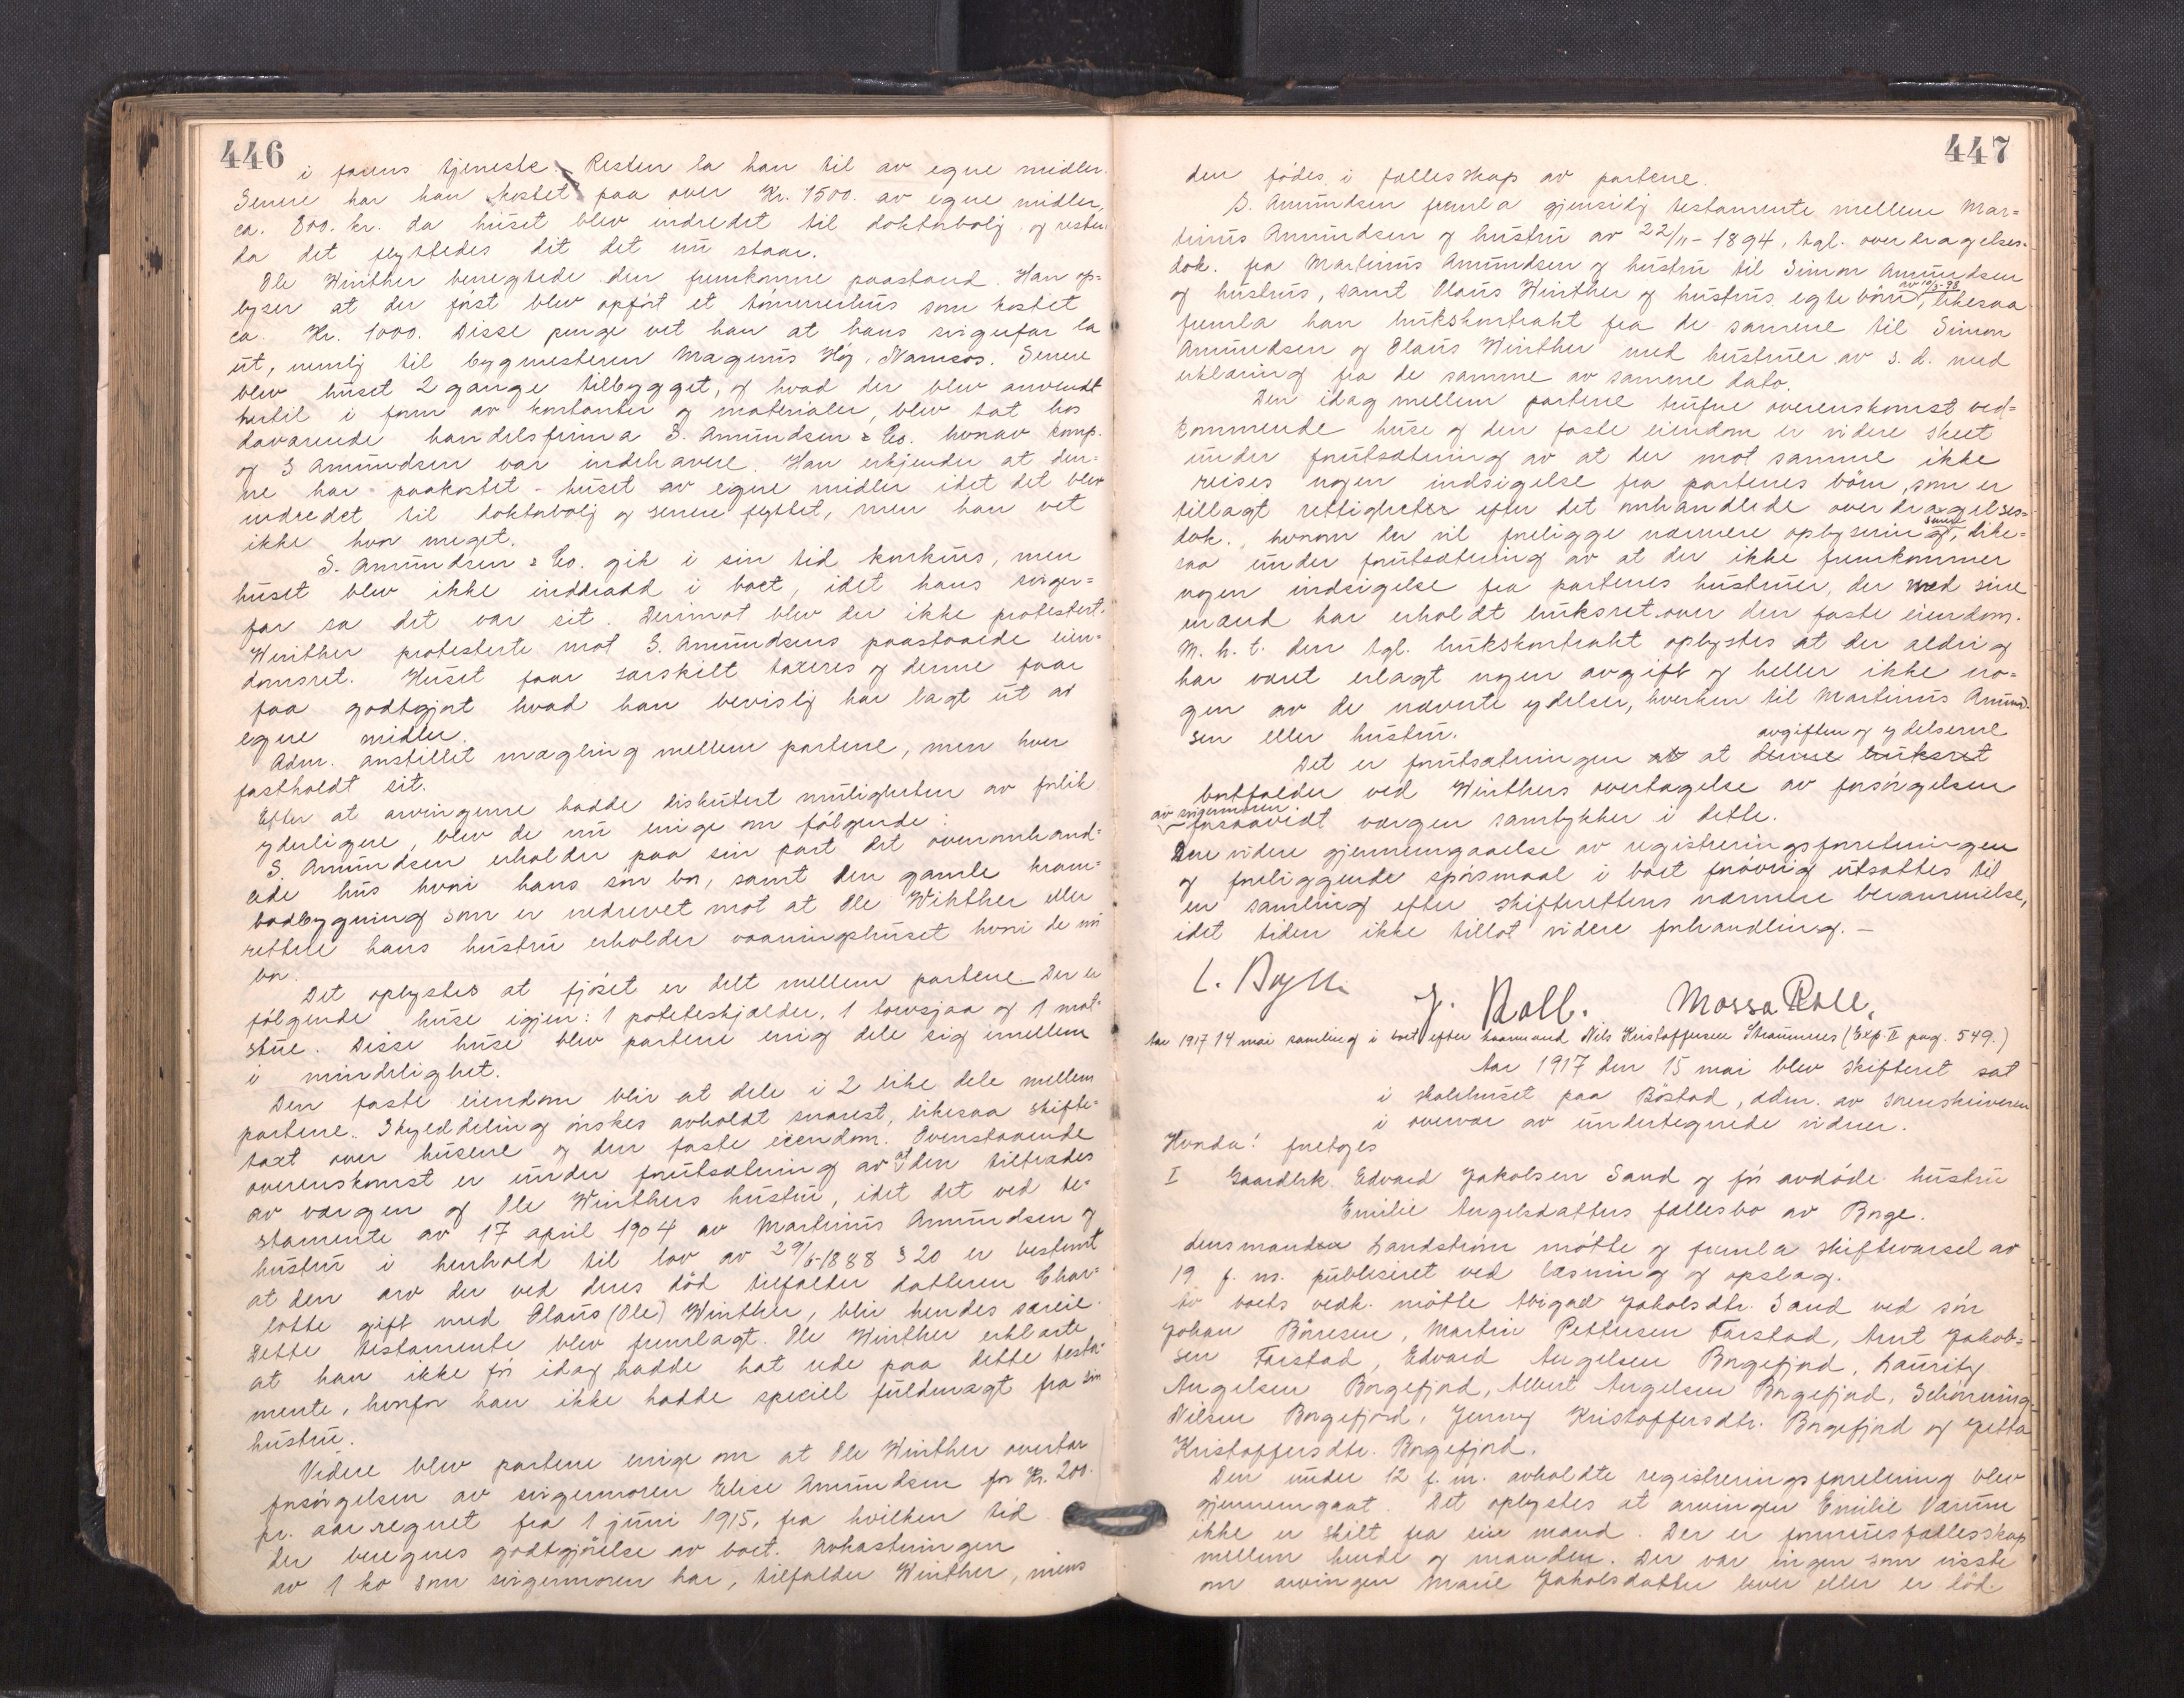 446
i farens tjeneste. Resten la han til av egne midler.
Senere har han kostet paa over Kr. 1500. av egne midler,
ca. 800. kr. da huset blev indredet til doktorbolig og resten
da det flyttedes dit det nu staar.
Ole Winther benegtede den fremkomne paastand. Han op=
lyser at der först blev opfört et tömmerhus som kostet
ca. Kr. 1000. Disse penge vet han at hans svigerfar la
ut, nemlig til bygmesteren Magnus Höj, Namsos. Senere
blev huset 2 gange tilbygget, og hvad der blev anvendt
hertil i form av kontanter og materialer, blev tat hos
daværende handelsfirma S. Amundsen & Co. hvorav komp.
og S Amundsen var indehavere. Han erkjender at den=
ne har paakostet huset av egne midler idet det blev
indredet til doktorbolig og senere flyttet, men han vet
ikke hvor meget.
S. Amundsen & Co. gik i sin tid konkurs, men
huset blev ikke inddradd i boet, idet hans sviger=
far sa det var sit. Derimot blev der ikke protestert.
Winther protesterte mot S. Amundsens paastaaede eien=
domsret. Huset faar særskilt taxeres og denne faar
faa godtgjort hvad han bevislig har lagt ut av
egne midler.
Adm. anstillet mægling mellem partene, men hver
fastholdt sit.
Efter at arvingerne hadde diskutert muligheten av forlik
yderligere, blev de nu enige om følgende:
S. Amundsen erholder paa sin part det ovenomhand=
lede hus hvori hans sön bor, samt den gamle kram=
bodbygning som er nedrevet mot at Ole Winther eller
rettere hans hustru erholder vaaningshuset hvori de nu
bor.
Det oplystes at fjöset er delt mellem partene Der er
fölgende huse igjen: 1 poteteskjælder, 1 torvsjaa og 1 mat=
stue. Disse huse blev partene enig dele sig imellem
i mindelighet.
Den faste eiendom blir at dele i 2 like dele mellem
partene. Skylddeling önskes avholdt snarest, likesaa skifte=
taxt over husene og den faste eiendom. Ovenstaaende
overenskomst er under forutsætning av at den tiltrædes
av værgen og Ole Winthers hustru, idet det ved te=
stamente av 17 april 1904 av Martinus Amundsen og
hustru i henhold til lov av 29/6-1888 § 20 er bestemt
at den arv der ved deres död tilfalder datteren Char=
lotte gift med Olaus (Ole) Winther, blir hendes særeie.
Dette testamente blev fremlagt. Ole Winther erklærte
at han ikke för idag hadde hat rede paa dette testa=
mente, hvorfor han ikke hadde speciel fuldmagt fra sin
hustru.
Videre blev partene enige om at Ole Winther overtar
forsörgelsen av svigermoren Elise Amundsen for Kr. 200.
pr. aar regnet fra 1 juni 1915, fra hvilken tid
der beregnes godtgjörelse av boet. Avkastningen
av 1 ko som svigermoren har, tilfalder Winther, mens
447
den födes i fællesskap av partene.
S. Amundsen fremla gjensidig testamente mellem Mar=
tinus Amundsen og hustru av 22/11-1894, tgl. overdragelses=
dok. fra Martinus Amundsen og hustru til Simon Amundsen
og hustrus, samt Olaus Winther og hustrus egte börn av 10/3-98, likesaa
fremla han brukskontrakt fra de samme til Simon
Amundsen og Olaus Winther med hustruer av s. d. med
erklæring fra de samme av samme dato.
Den idag mellem partene trufne overenskomst ved=
kommende huse og den faste eiendom er videre skeet
under forutsætning av at der mot samme ikke
reises nogen indsigelse fra partenes börn, som er
tillagt rettigheter efter det omhandlede overdragelses=
dok. hvorom der vil foreligge nærmere oplysning senere, like=
saa under forutsætning av at der ikke fremkommer
nogen indsigelse fra partenes hustruer, der med sine
mænd har erholdt bruksret over den faste eiendom.
M. h. t. den tgl. brukskontrakt oplystes at der aldrig
har været erlagt nogen avgift og heller ikke no=
gen av de nævnte ydelser, hverken til Martinus Amund=
sen eller hustru.
avgiften og ydelserne
Det er forutsætningen at at denne bruksret
bortfalder ved Winthers overtagelse av forsörgelsen
av svigermoren.
forsaavidt værgen samtykker i dette.
Den videre gjennemgaaelse av registreringsforretningen
og foreliggende spörsmaal i boet forövrig utsattes til
en samling efter skifterettens nærmere berammelse,
idet tiden ikke tillot videre forhandling. —
J. Roll. Mossa Roll.
Aar 1917 14 mai samling i boet efter baarmand Nils Kristoffersen Straumnes (Exp. II pag. 549.)
Aar 1917 den 15 mai blev skifteret sat
i skolehuset paa Böstad, adm. av sorenskriveren
i overvær av undertegnede vidner.
Hvorda! foretoges
I Gaardbr. Edvard Jakobsen Sand og för avdöde hustru
Emilie Angelsdatters fællesbo av Borge.
Lensmanden Landström mötte og fremla skiftevarsel av
19 f. m. publiseret ved læsning og opslag.
Av boets vedk. mötte Abigael Jakobsdtr. Sand ved sön
Johan Börresen, Martin Pettersen Farstad, Arnt Jakob=
sen Farstad, Edvard Angelsen Borgefjord, Lauritz
Angelsen Borgefjord, Albert Angelsen Borgefjord, Schönning
Nilsen Borgefjord, Jenny Kristoffersdtr. Borgefjord og Jetta
Kristoffersdtr. Borgefjord.
Den under 12 f. m. avholdte registreringsforretning blev
gjennemgaat. Det oplystes at arvingen Emilie Værum
ikke er skilt fra sin mand. Der er formuesfællesskap
mellem hende og manden. Der var ingen som visste
om arvingen Marie Jakobsdatter lever eller er död.